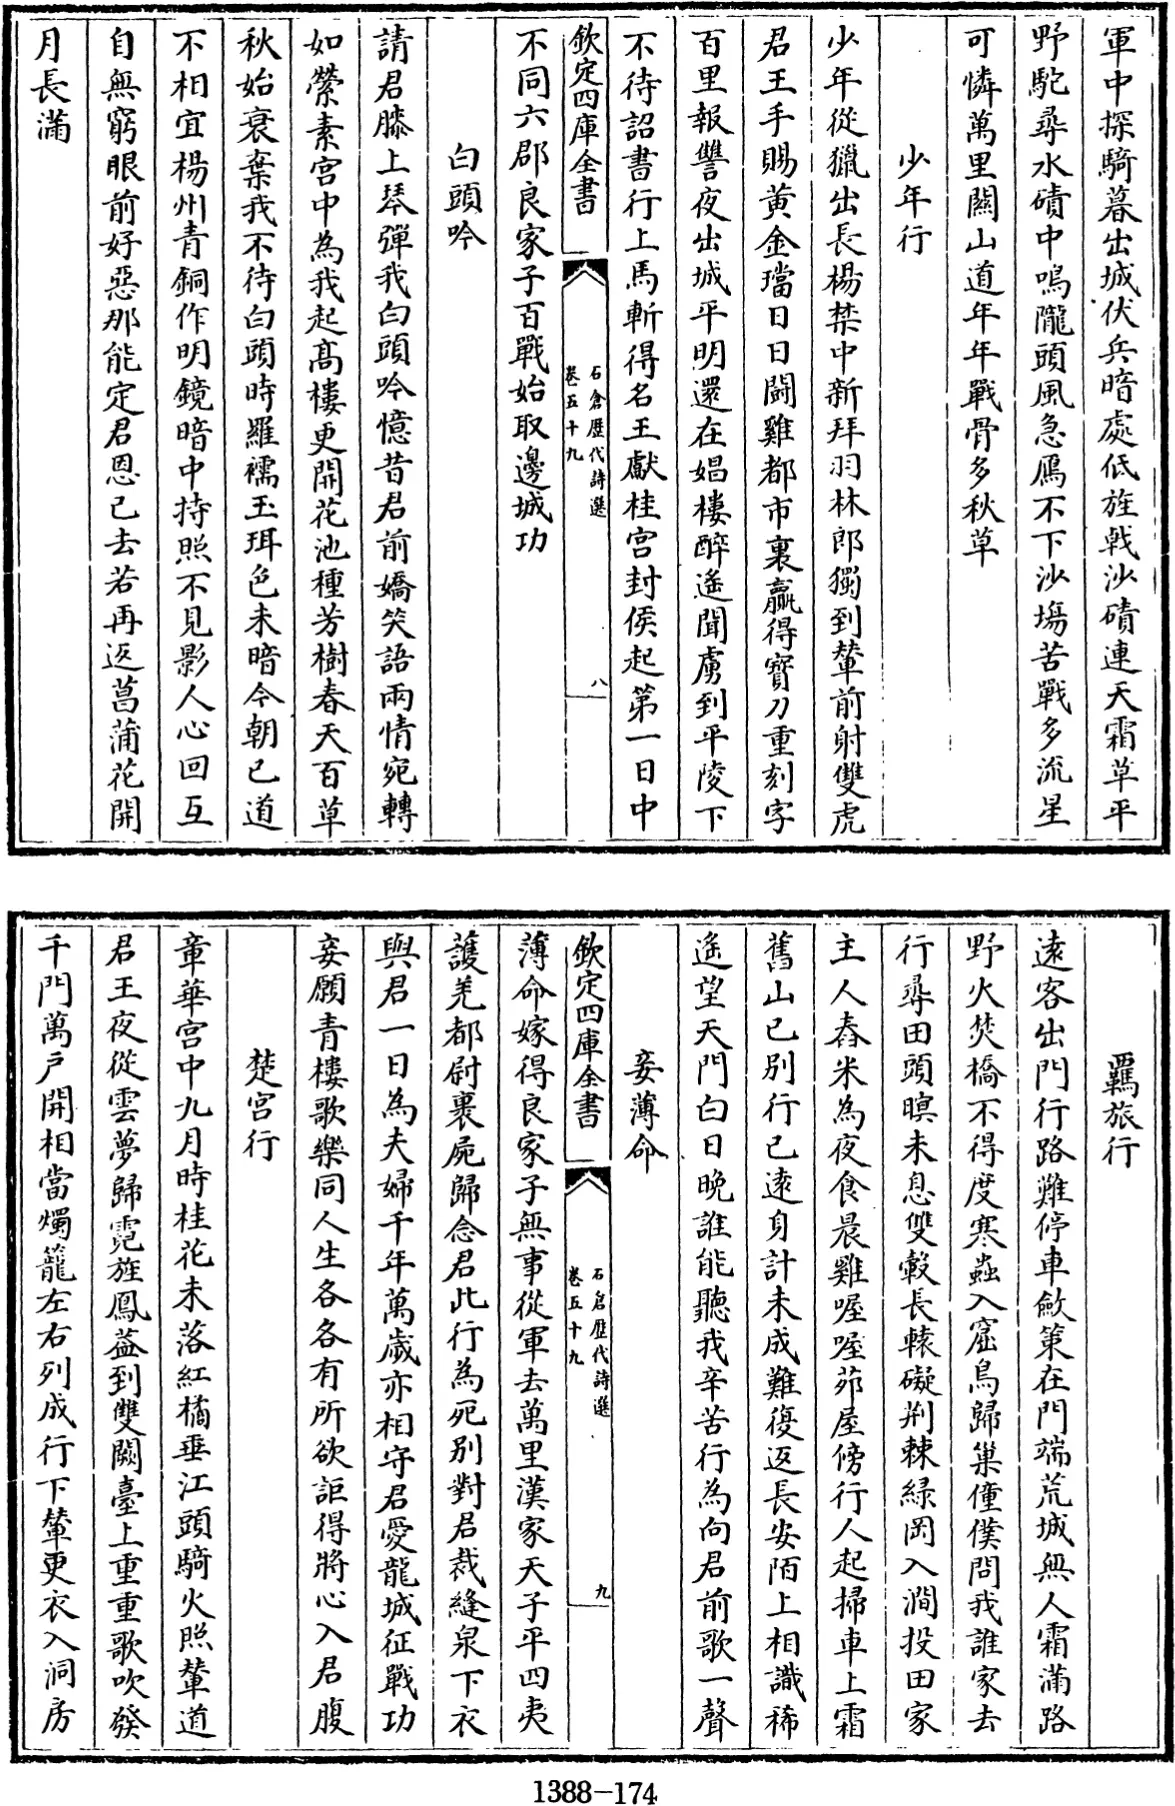 軍中探騎暮出城伏兵暗處低旌戟沙磧連天霜草平
野駝尋水磧中鳴隴頭風急鴈不下沙場苦戰多流星
可憐萬里關山道年年戰骨多秋草
少年行
少年從獵出長楊禁中新拜羽林郎獨到輦前射雙虎
君王手賜黄金璫日日鬬雞都市裏贏得寳刀重刻字
百里報讐夜出城平明還在娼樓醉遙聞虜到平陵下
不待詔書行上馬斬得名王獻桂宫封侯起第一日中
欽定四庫全書
石倉歷代詩選
卷五十九
八
不同六郡良家子百戰始取邊城功
白頭吟
請君膝上琴彈我白頭吟憶昔君前嬌笑語兩情宛轉
如縈素宫中為我起髙樓更開花池種芳樹春天百草
秋始衰棄我不待白頭時羅襦玉珥色未暗今朝已道
不相宜楊州青銅作明鏡暗中持照不見影人心回互
自無窮眼前好惡那能定君恩已去若再返菖蒲花開
月長滿
羈旅行
遠客出門行路難停車斂策在門端荒城無人霜滿路
野火焚橋不得度寒蟲入窟鳥歸巢僮僕問我誰家去
行尋田頭暝未息雙轂長轅礙荆棘緑岡入澗投田家
主人舂米為夜食晨雞喔喔茆屋傍行人起掃車上霜
舊山已别行已遠身計未成難復返長安陌上相識稀
遥望天門白日晚誰能聽我辛苦行為向君前歌一聲
妾薄命
欽定四庫全書
石倉歷代詩選
卷五十九
九
薄命嫁得良家子無事從軍去萬里漢家天子平四夷
䕶羌都尉裹屍歸念君此行為死别對君裁縫泉下衣
與君一日為夫婦千年萬歲亦相守君愛龍城征戰功
妾願青樓歌樂同人生各各有所欲詎得將心入君腹
楚宫行
章華宫中九月時桂花未落紅橘垂江頭騎火照輦道
君王夜從雲夢歸霓旌鳳葢到雙闕臺上重重歌吹發
千門萬户開相當燭籠左右列成行下輦更衣入洞房
1388-174